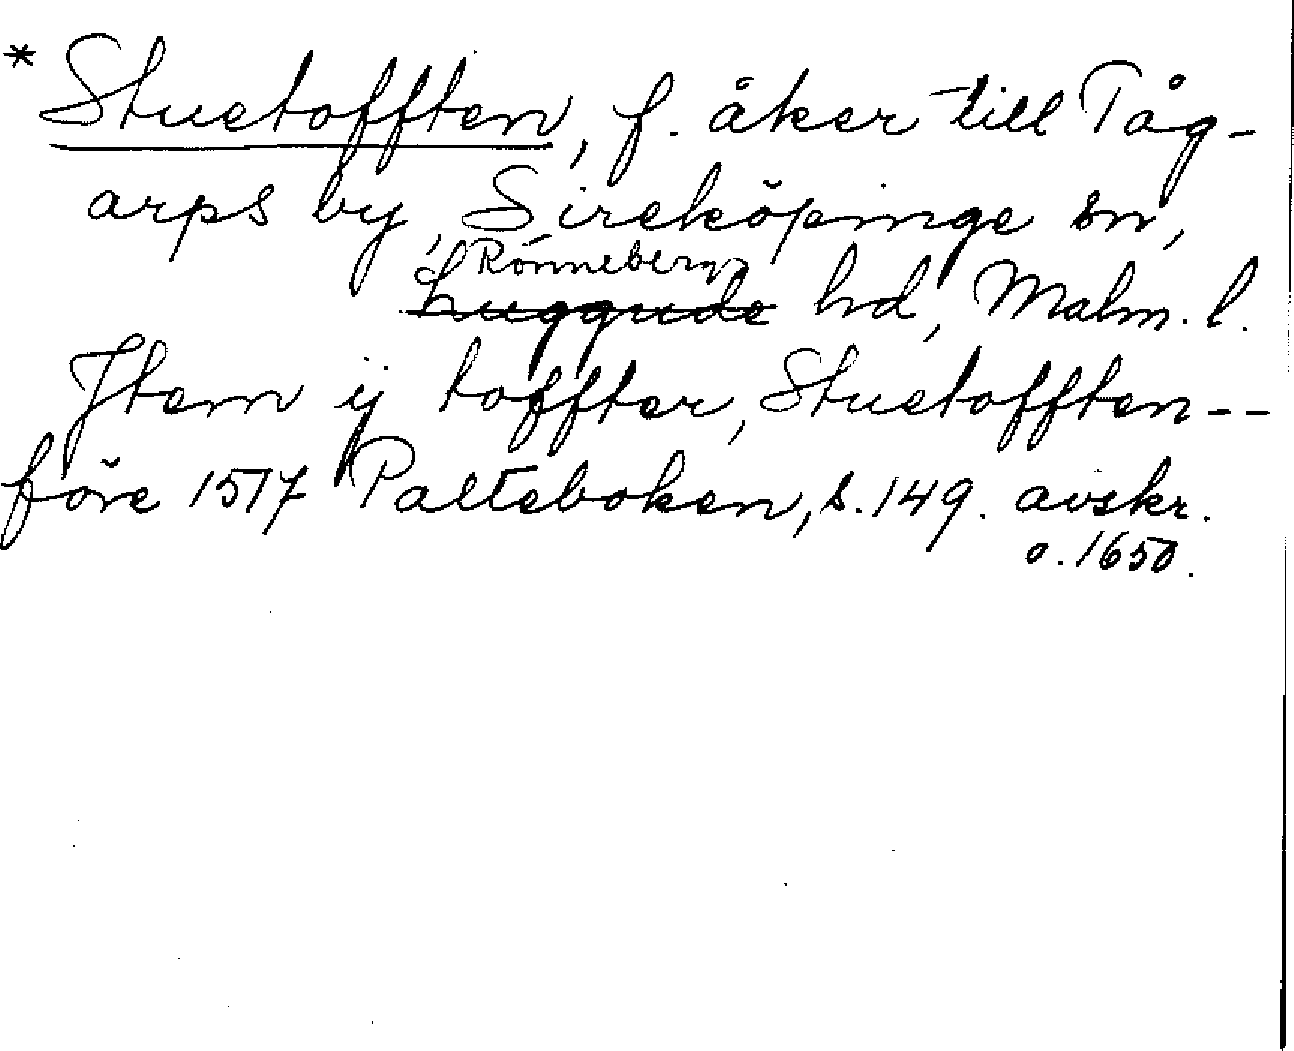 * Stuetofften, f. åker till Tåg-
arps by, Sireköpinge sn,
Rönneberg
Luggude hd, Malm. l.
Jtem ij toffter, Stuetofften--
före 1517 Palteboken, s. 149. avskr.
o. 1650.